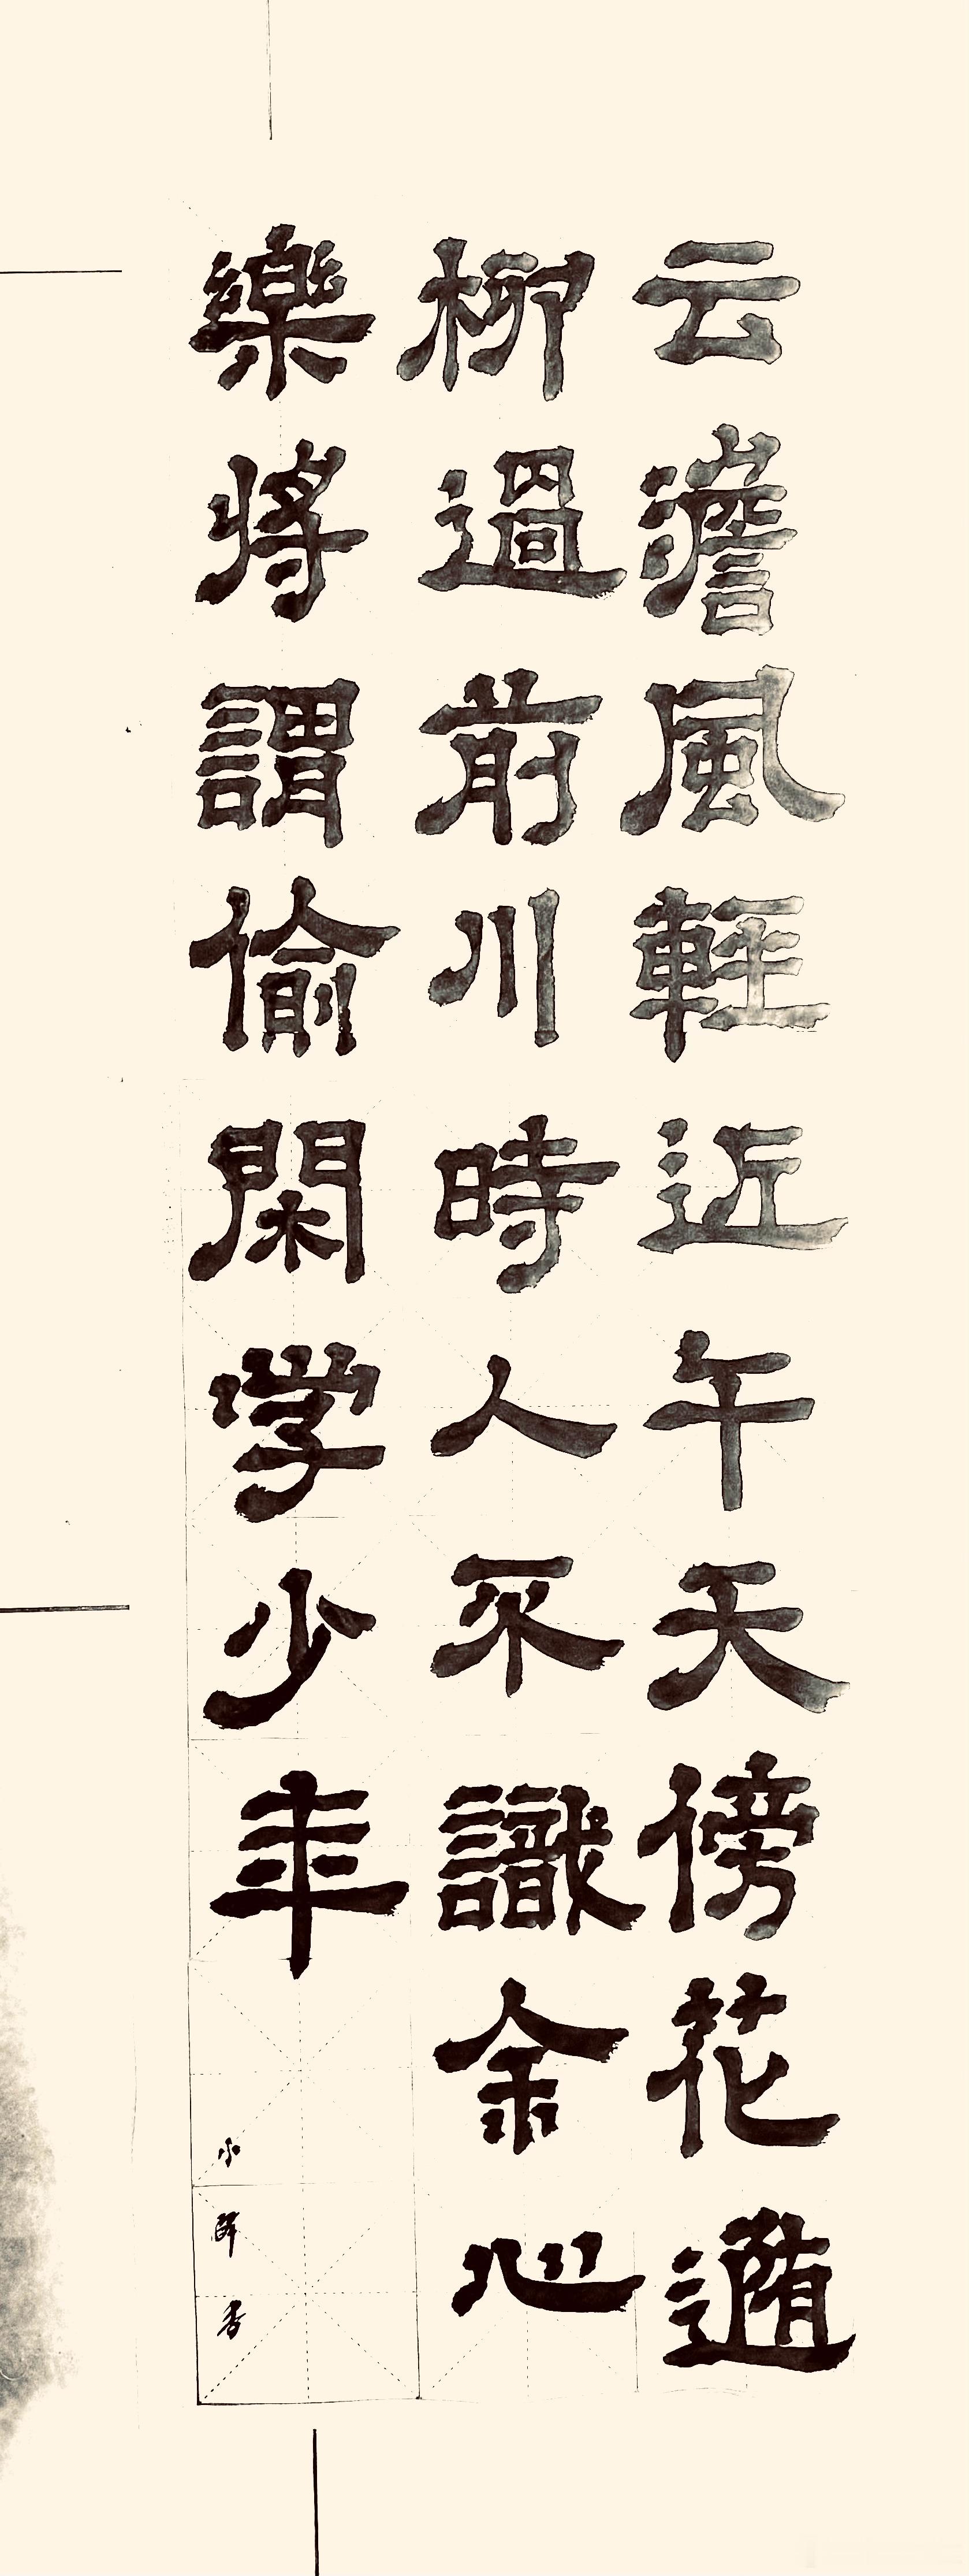 云澹風輕近午天傍花隨
柳過前川時人不識余心
樂將謂偷閑學少年
小 香